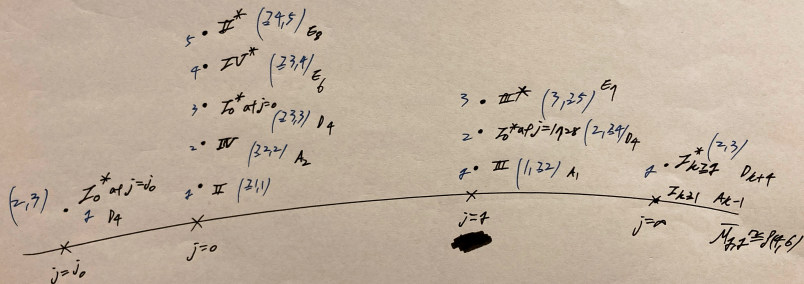 5 • II* (≥4,5) E₈
4 • IV* (≥3,4) E₆
3 • I₀* at j=0 (≥3,3) D₄
2 • IV (≥2,2) A₂
1 • II (≥1,1)
j=0
(2,3) • I₀* at j=j₀
1 D₄
j=j₀
3 • III* (3,≥5) E₇
2 • I₀* at j=1728 (2,≥4) D₄
1 • III (1,≥2) A₁
j=1
1 • I*ₖ≥₁ (2,3) Dₖ₊₄
Iₖ≥₁ Aₖ₋₁
j=∞
M̅₁,₁ ≅ P(4,6)